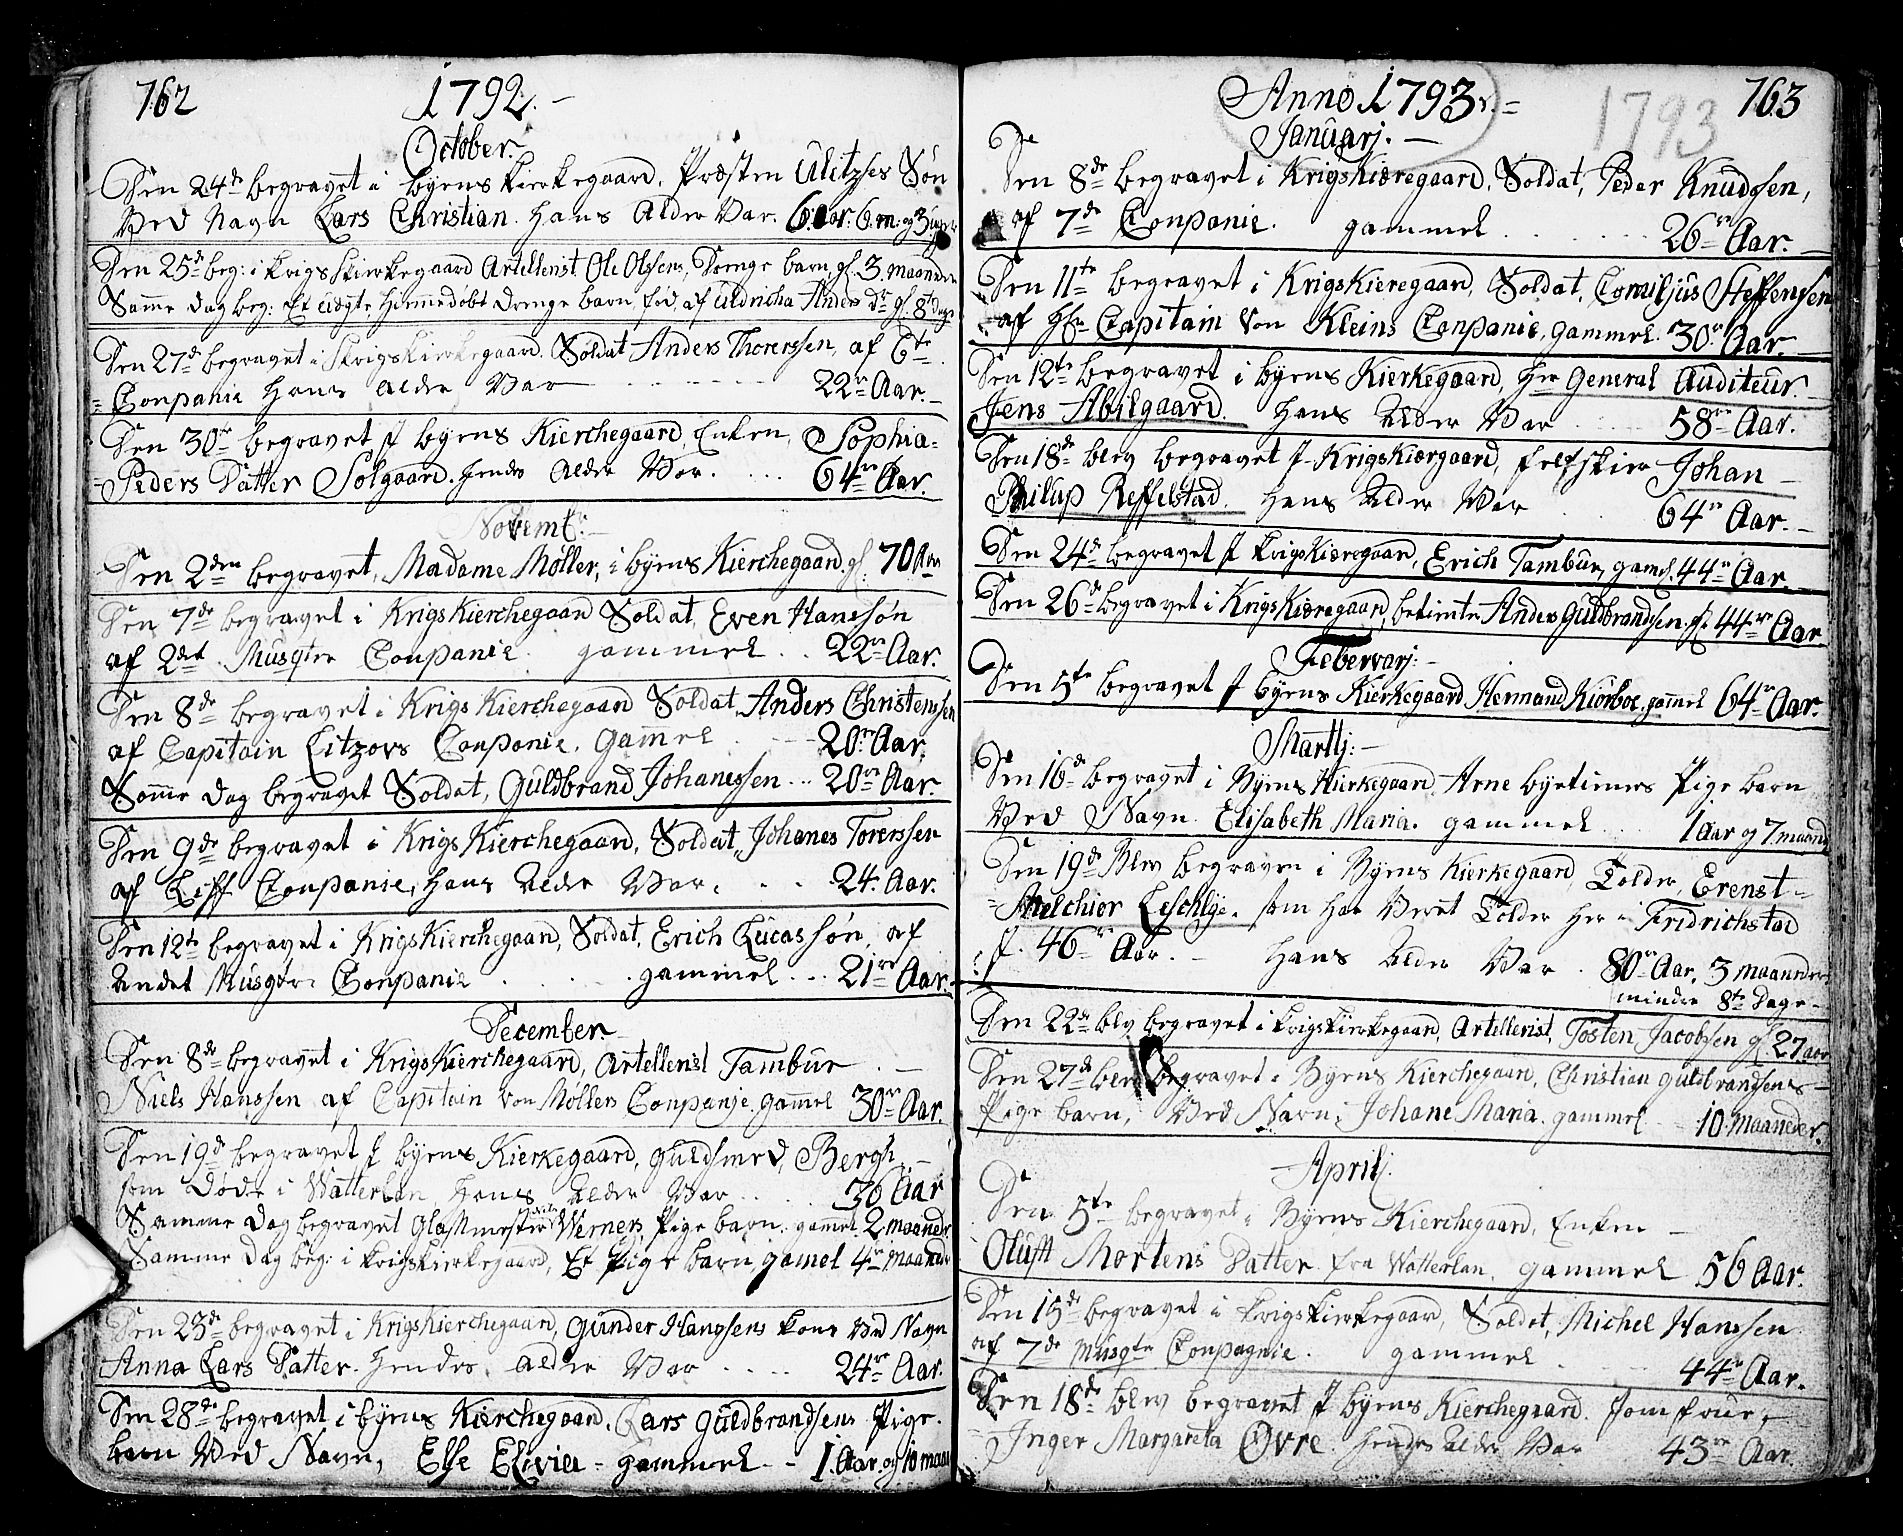 762
1792.
October.
Den 24de begravet i byens kierkegaard, Præsten Ulitzses Søn
Ved Navn Lars Christian. hans Alder Var. 6 Aar. 6 m: og 3 uger
Den 25de beg: i krigs kierkegaard Artellerist Ole Olssens, Drenge barn, gl. 3 maaneder
Samme dag beg: Et Uægte hiemmedøbt drenge barn, fød, af Uldricha Anders Dr gl. 8te dage
Den 27de begravet i krigskierkegaard. Soldat Anders Thorerssen, af 6te
Conpanie hans alder Var 22re Aar.
Den 30te begravet i byens Kierchegaard, Enken, Sophia
Peders Datter Solgaard. hendes Alder Var. 64re Aar.
Novemb:
Den 2den begravet, Madame Møller, i byens Kierchegaard, gl. 70 Aar
Den 7de begravet i Krigs Kierchegaard Soldat, Even Hanssøn
af 2det Musqter Conpanie. gammel 22re Aar.
Den 8de begravet i Krigs Kierchegaard Soldat, Anders Christenssen
af Capitain Litzovs Conpanie. gamel 20re Aar.
Samme dag begravet Soldat, Guldbrand Johanessen 20re Aar.
Den 9de begravet i Krigs Kierchegaard, Soldat, Johanes Torerssen
af Liff Conpanie, hans Alder Var. 24. Aar.
Den 12te begravet i Krigs Kierchegaard, Soldat, Erich Lucassøn, af
Andet Musqter Conpanie gammel 21re Aar.
December.
Den 8de begravet i Krigs Kierchegaard, Artellerist Tambur
Niels Hanssen af Capitain von Møllers Conpanje. gammel 30re Aar.
Den 19de begravet i byens Kierkegaard, guldsmed, Bergh,
som døde i Watterlan, hans Alder Var 36 Aar
Samme dag begravet Glassmester Werners Pige barn. gamel. 2 maaneder
Samme dag beg: i krigskierkegaard, Et Pige barn, gamel 4re maaneder
Den 23de begravet i Krigs Kierchegaard, Gunder Hanssens kone Ved Navn
Anna Lars Datter. hendes alder Var 24re Aar.
Den 28de begravet i byens Kierchegaard. Lars guldbrandsens Pige
barn Ved Navn, Else Elevia - gammel 1. Aar. og 10 maan
763
Anno 1793.
1793
Januarj.
Den 8de begravet i Krigs Kiæregaard, Soldat, Peder Knudssen,
af 7de Conpanie. gammel 26re Aar.
Den 11te begravet i Krigs Kieregaard, Soldat, Corniljus Steffensen
af Hr Capitain Von Kleins Conpanie, gammel 30re Aar.
Den 12te begravet i byens Kierkegaard, Hr General Auditeur.
Jens Abilgaard. hans Alder Var 58re Aar.
Den 18de blev begravet i Krigs Kiærgaard, feltskier Johan
Philup Reffelstad. hans Alder Var 64re Aar.
Den 24de begravet i krigs Kiæregaard, Erich Tambur, gamel. 44re Aar.
Den 26de begravet i Krigs Kiæregaard, betiente Anders Guldbrandsen. gl: 44re Aar
Febervarj:
Den 5te begravet i byens Kierkegaard Hermand Kiørboe. gamel 64re Aar.
Martij:
Den 16de begravet i Byens Kierkegaard, Arne byetieners Pige barn
Ved Navn. Elisabeth Maria. gammel 1 Aar og 7. maand
Den 19de Blev begraven i Byens Kierkegaard, Tolder, Erenst
Melchior Leschlye. som har Veret Tolder her i Fridrichstad
i. 46re Aar. hans Alder Var 80re Aar, 3 maaneder
mindre 8te Dage
Den 22de blv begravet i krigskierkegaard, Artellerist, Tosten Jacobsen gl. 27 aar
Den 27de blev begravet i Byens Kierchegaard, Christian guldbrandsens
Pige barn, Ved Navn, Johane Maria. gammel 10 Maaneder.
April.
Den 5te begravet i Byens Kierchegaard, Enken
Oluft Mortens Datter fra Watterlan. gammel 56 Aar.
Den 15de begravet i krigskierkegaard, Soldat, Michel Hanssen
af 7de Musqte Conpagnie. gammel 44re Aar.
Den 18de blev begravet i byens Kierchegaard. Jomfrue,
Inger Margareta Øvre. hendes Alder Var 43re Aar.